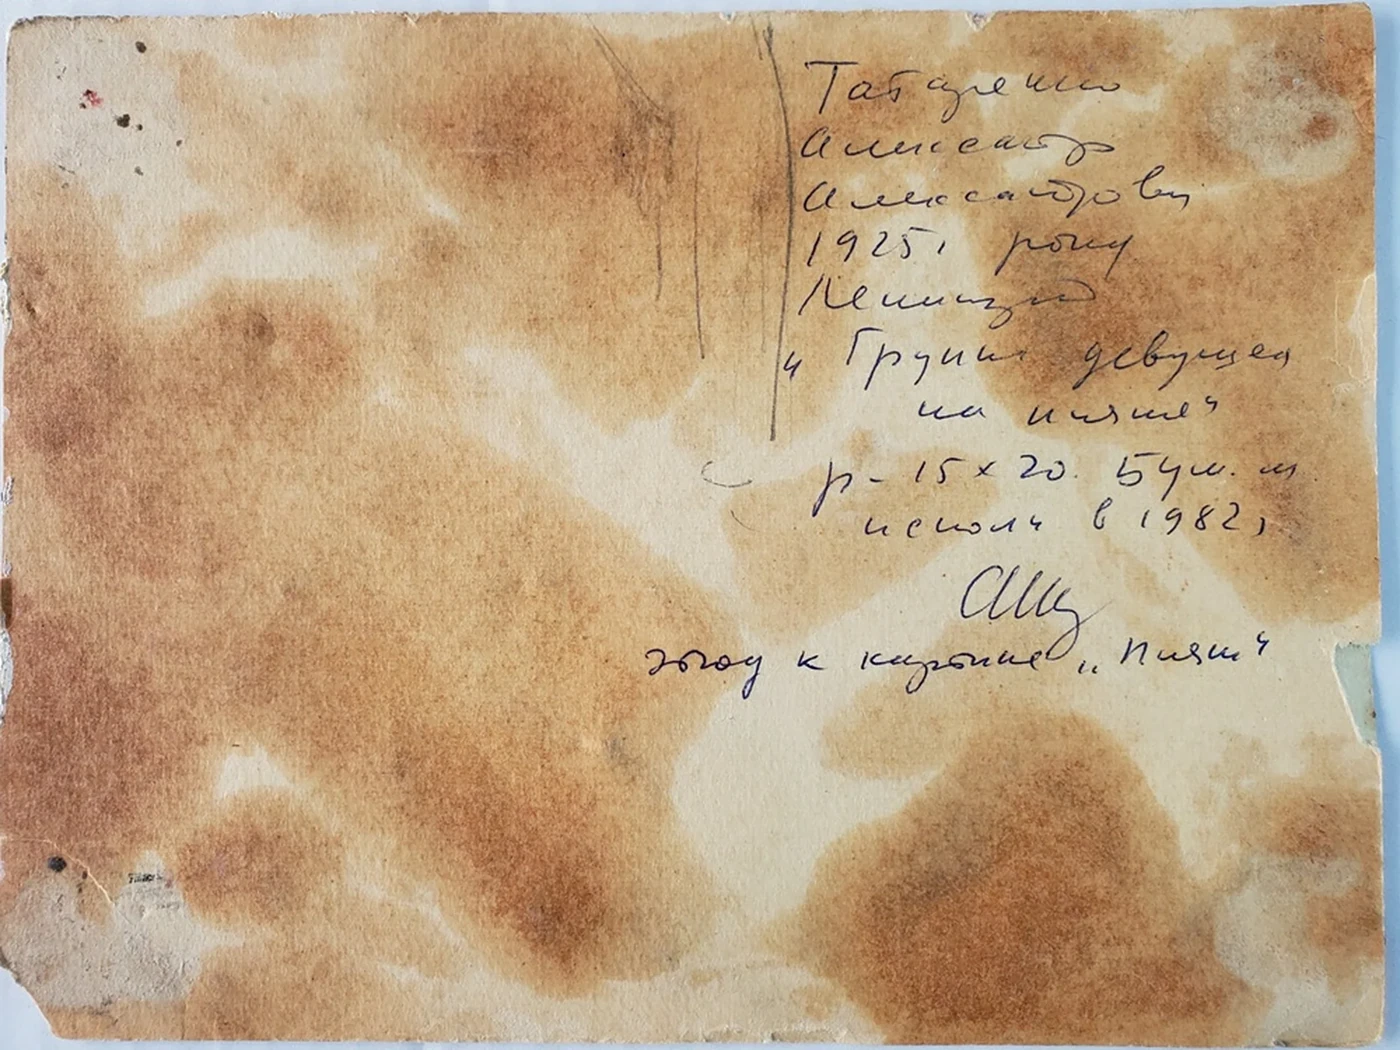 Татаренко
Александр
Александрови
1925г рожд
Ленинград
"Группа девушек
на пляже"
р-15х20. Бум. м.
исполн в 1982г
этюд к картине „Пляж"